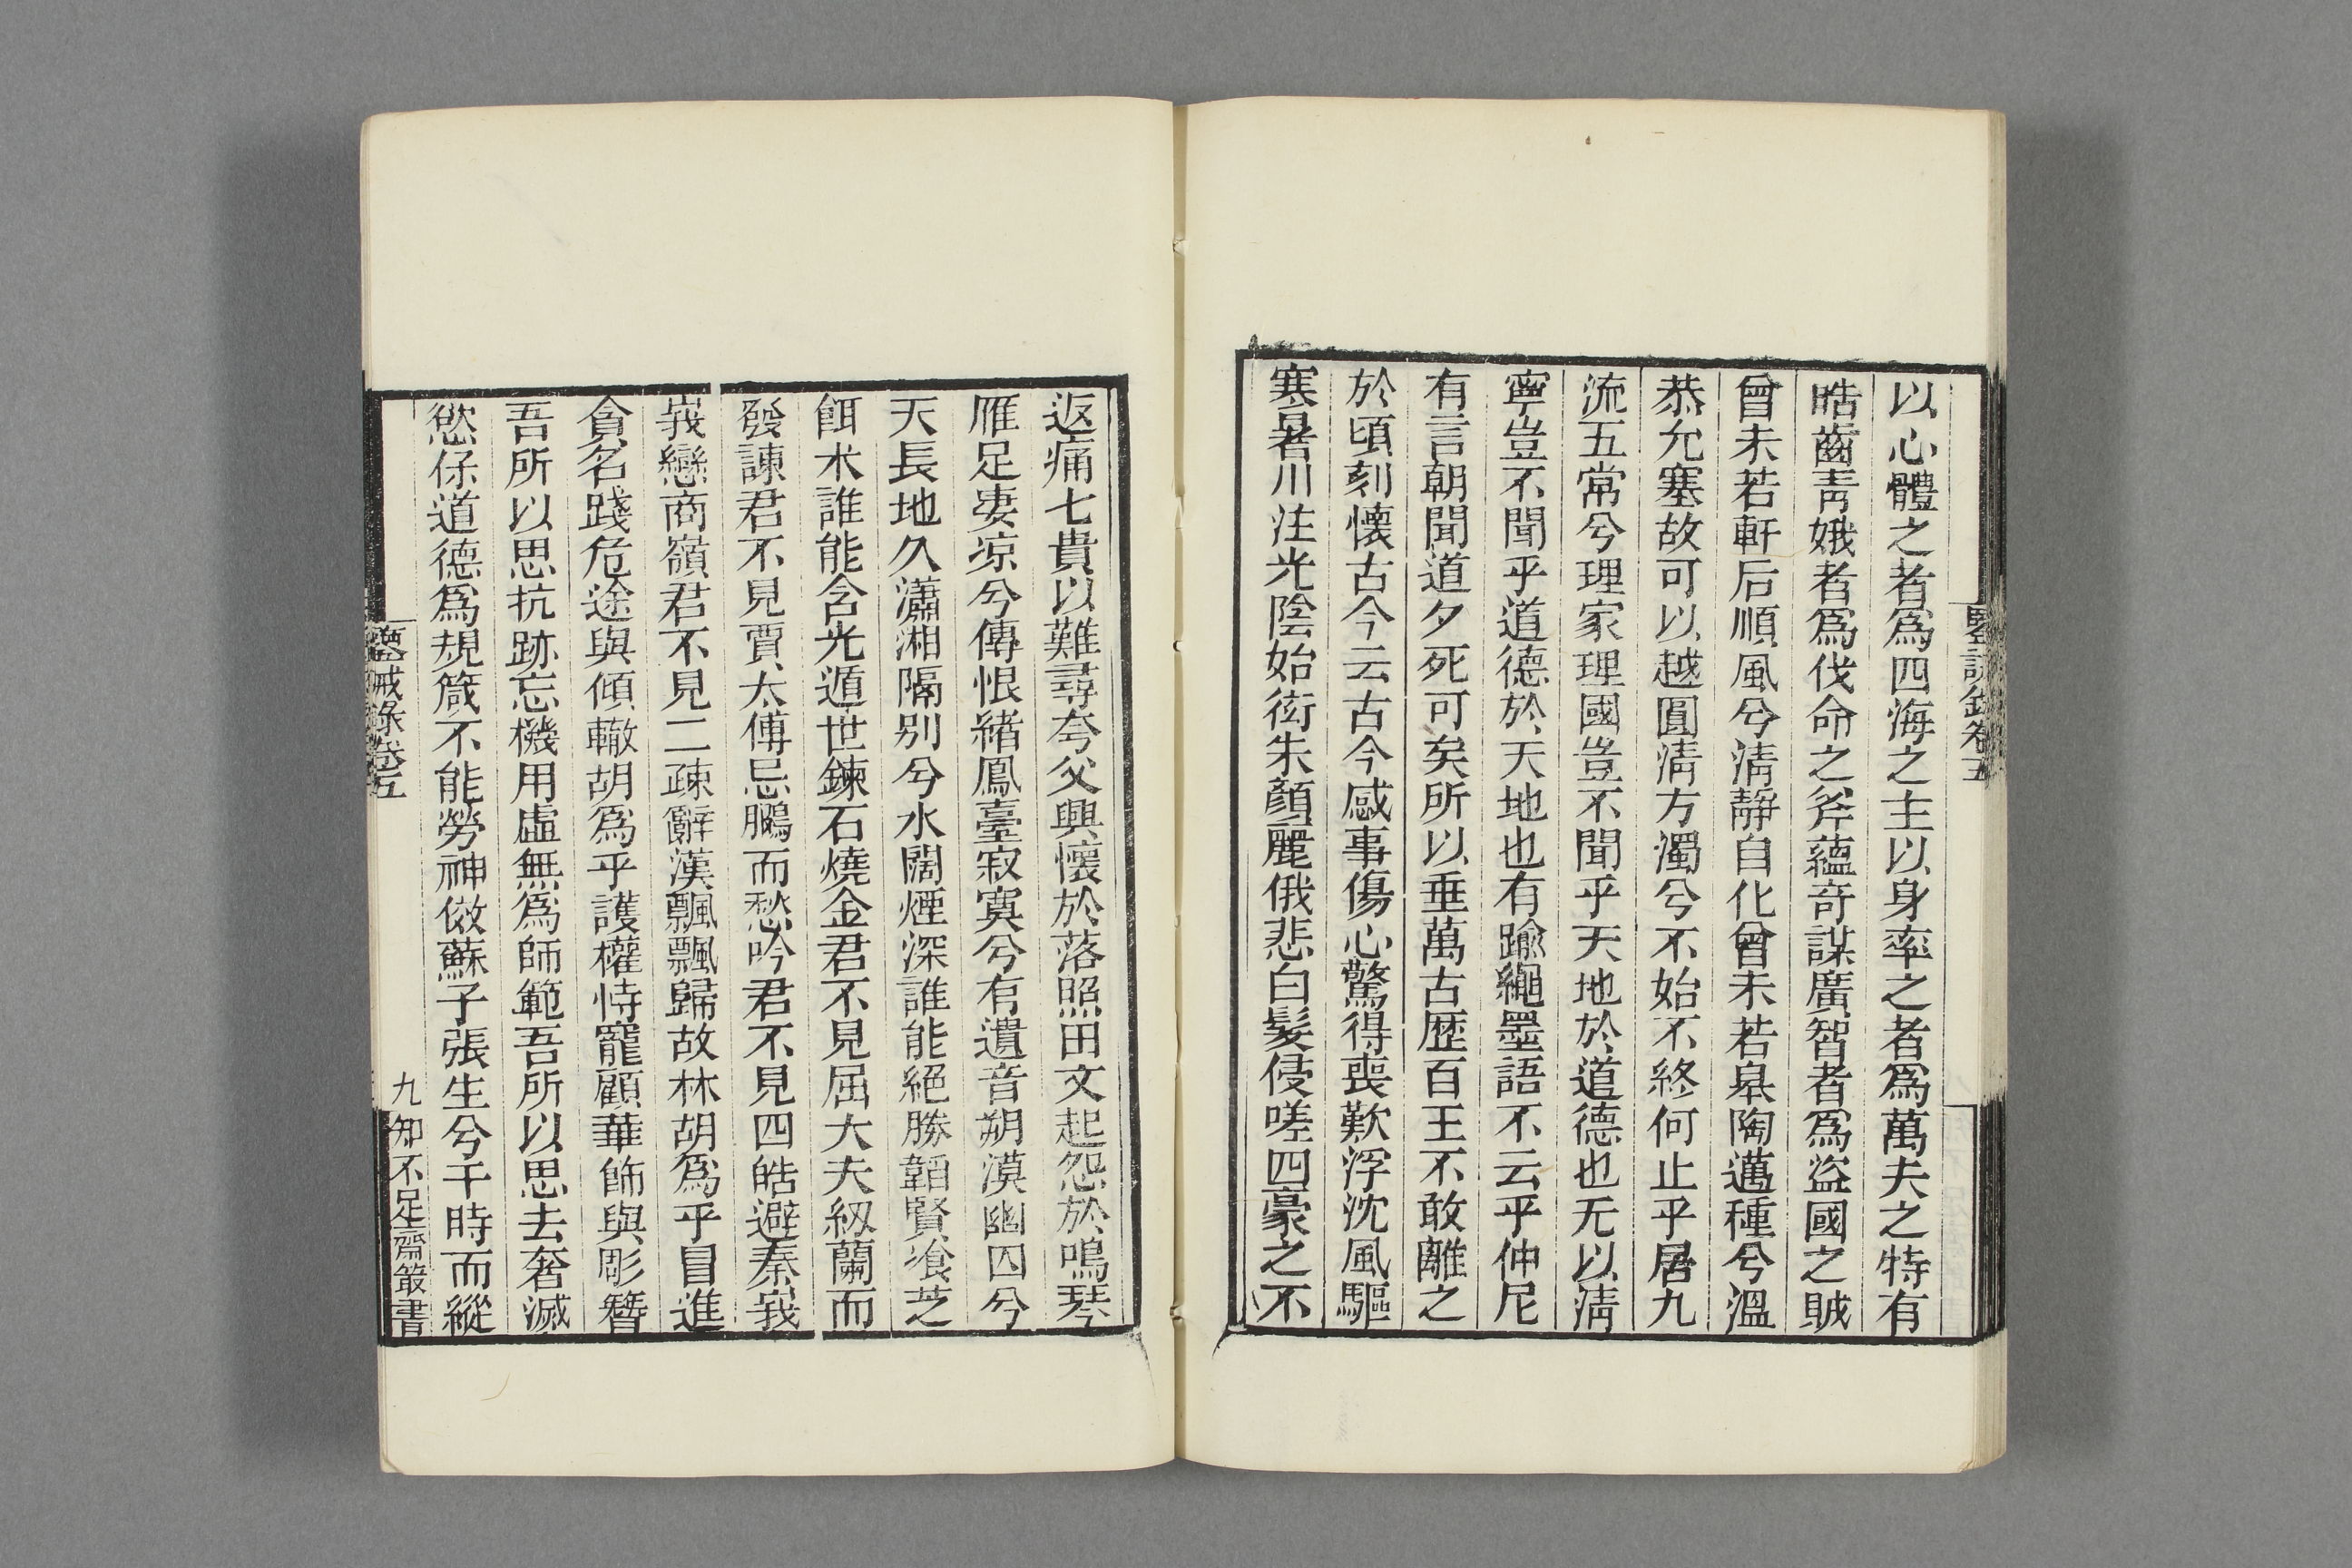 以心體之者爲四海之主以身率之者爲萬夫之特有
皓齒靑娥者爲伐命之斧蘊奇謀廣智者爲盜國之賊
曾未若軒后順風兮淸靜自化曾未若皋陶邁種兮溫
恭允塞故可以越圓淸方濁兮不始不終何止乎居九
流五常兮理家理國豈不聞乎天地於道德也无以淸
寧豈不聞乎道德於天地也有踰繩墨語不云乎仲尼
有言朝聞道夕死可矣所以垂萬古歷百王不敢離之
於頃刻懷古今云古今感事傷心驚得喪歎浮沈風驅
寒暑川注光陰始衒朱顏麗俄悲白髮侵嗟四豪之不
返痛七貴以難尋夸父興懷於落照田文起怨於鳴琴
雁足淒凉兮傳恨緒鳳臺寂寞兮有遺音朔漠幽囚兮
天長地久瀟湘隔别兮水闊煙深誰能絕勝韜賢飡芝
餌朮誰能含光遁世鍊石燒金君不見屈大夫紉蘭而
發諫君不見賈太傅忌鵩而愁吟君不見四皓避秦峩
峩戀商嶺君不見二疎辭漢飄飄歸故林胡爲乎冒進
貪名踐危途與傾轍胡爲乎護權恃寵顧華飾與彫簪
吾所以思抗跡忘機用虛無爲師範吾所以思去奢滅
慾保道德爲規箴不能勞神傚蘇子張生兮干時而縱
鑒戒錄卷五
九
知不足齋叢書